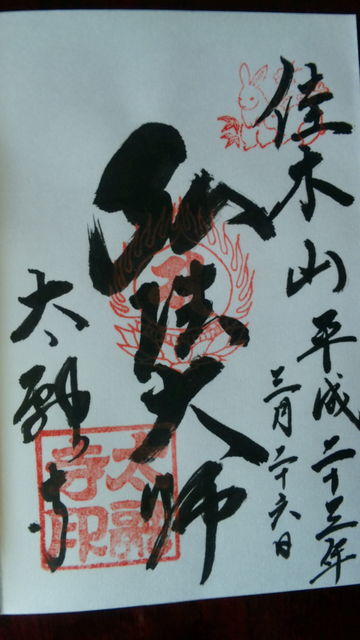 佳木山
平成二十三年
三月二十六日
弘法大師
太融寺
太融
寺印